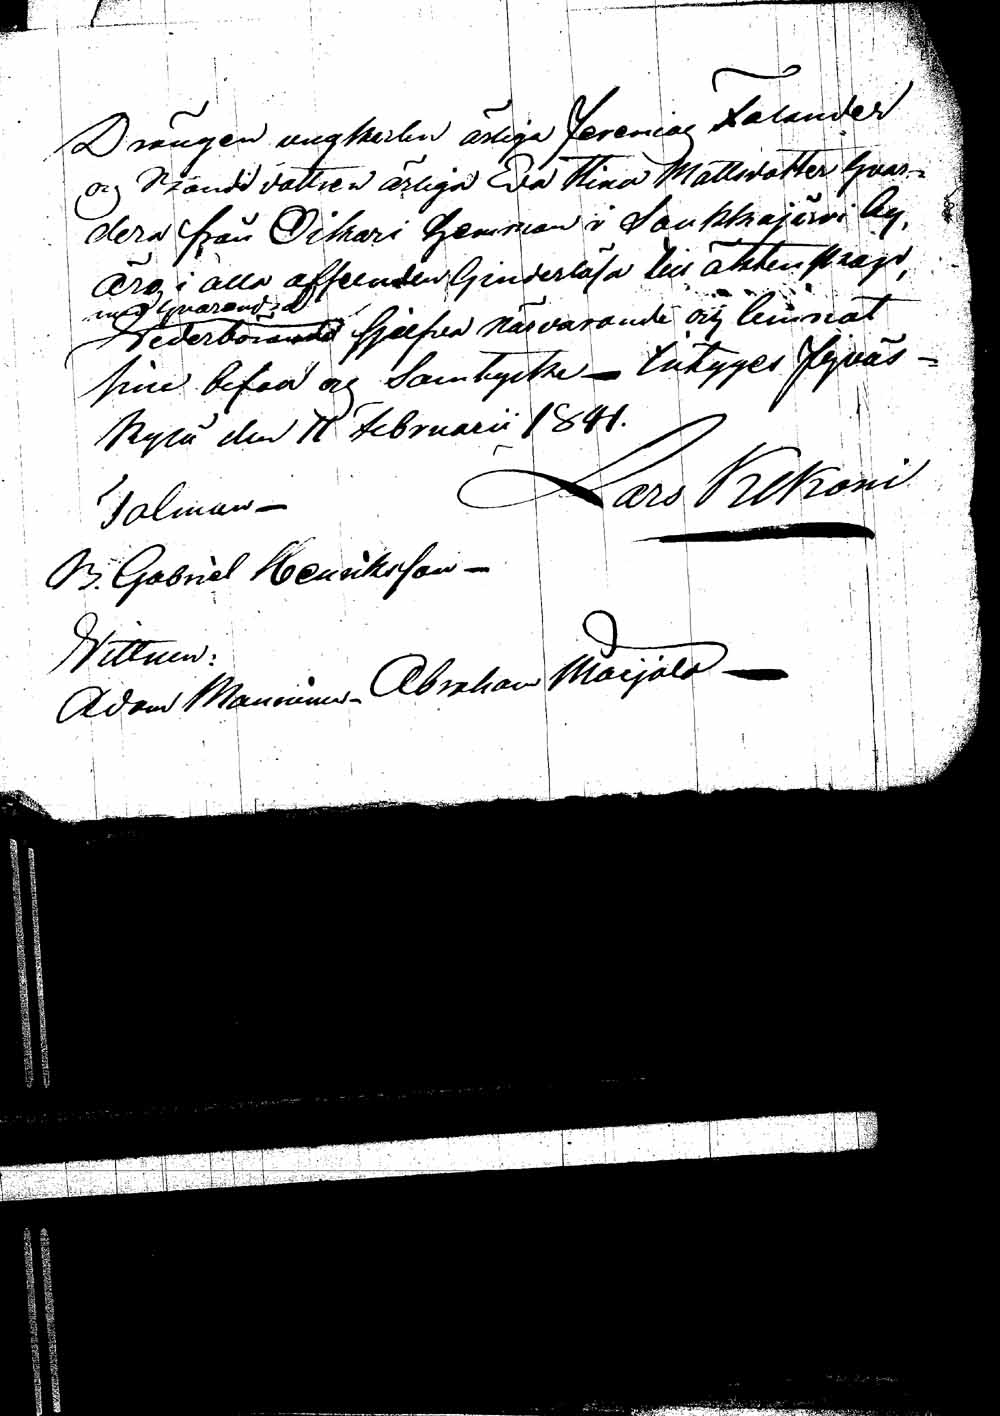 Drängen ungkarlen ärliga Jeremias Falander
og Bondedottren ärliga Eva Stina Mattsdotter hvar-
dera från Oikari hemman i Saukkajärvi by,
äro i alla afseenden hinderlösa till äktenskaps,
med hvarandra
Wederbörande sjelfva närvarande og lemnat
sine befad og Samtycke — Intyges Jyväs-
kylä den 11 Februarii 1841.
Lars Kekoni
Talman —
B. Gabriel Henriksson —
Wittnen:
Adam Manninen — Abraham Marjola —